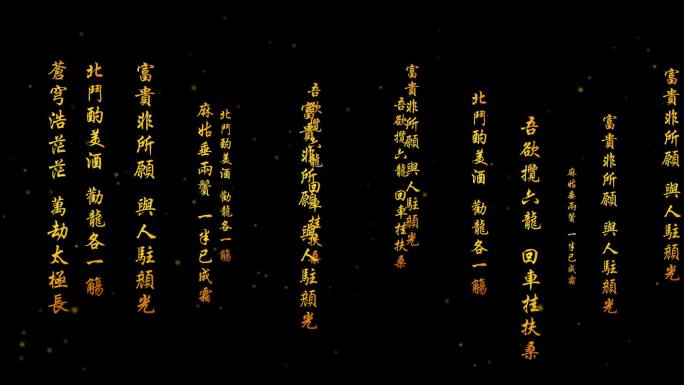 富貴非所願 與人駐顔光
富貴非所願 與人駐顔光
麻姑垂兩鬢 一半已成霜
吾欲攬六龍 回車挂扶桑
北鬥酌美酒 勸龍各一觴
富貴非所願 與人駐顔光
吾欲攬六龍 回車挂扶桑
吾欲攬六龍 回車挂扶桑
富貴非所願 與人駐顔光
北鬥酌美酒 勸龍各一觴
麻姑垂兩鬢 一半已成霜
富貴非所願 與人駐顔光
北鬥酌美酒 勸龍各一觴
蒼穹浩茫茫 萬劫太極長